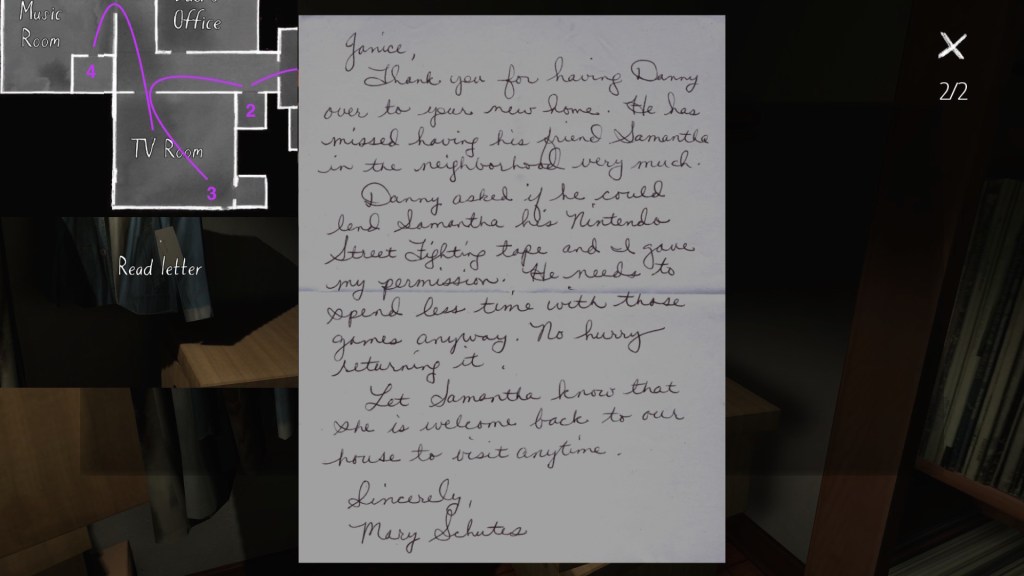 Music
Room
Office
4
2
TV Room
3
Read letter
Janice,
Thank you for having Danny
over to your new home. He has
missed having his friend Samantha
in the neighborhood very much.
Danny asked if he could
lend Samantha his Nintendo
Street Fighting tape and I gave
my permission. He needs to
spend less time with those
games anyway. No hurry
returning it.
Let Samantha know that
she is welcome back to our
house to visit anytime.
Sincerely,
Mary Schutes
2/2